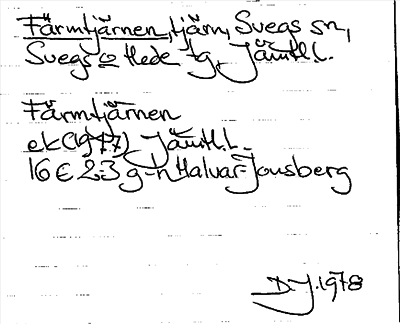 Färmtjärnen, tjärn, Svegs sn,
Svegs o Hede tg, Jämtl.l.
Färmtjärnen
ek (1977) Jämtl.l.
16 E 2-3 g-h Halvar-Jousberg
D.J. 1978